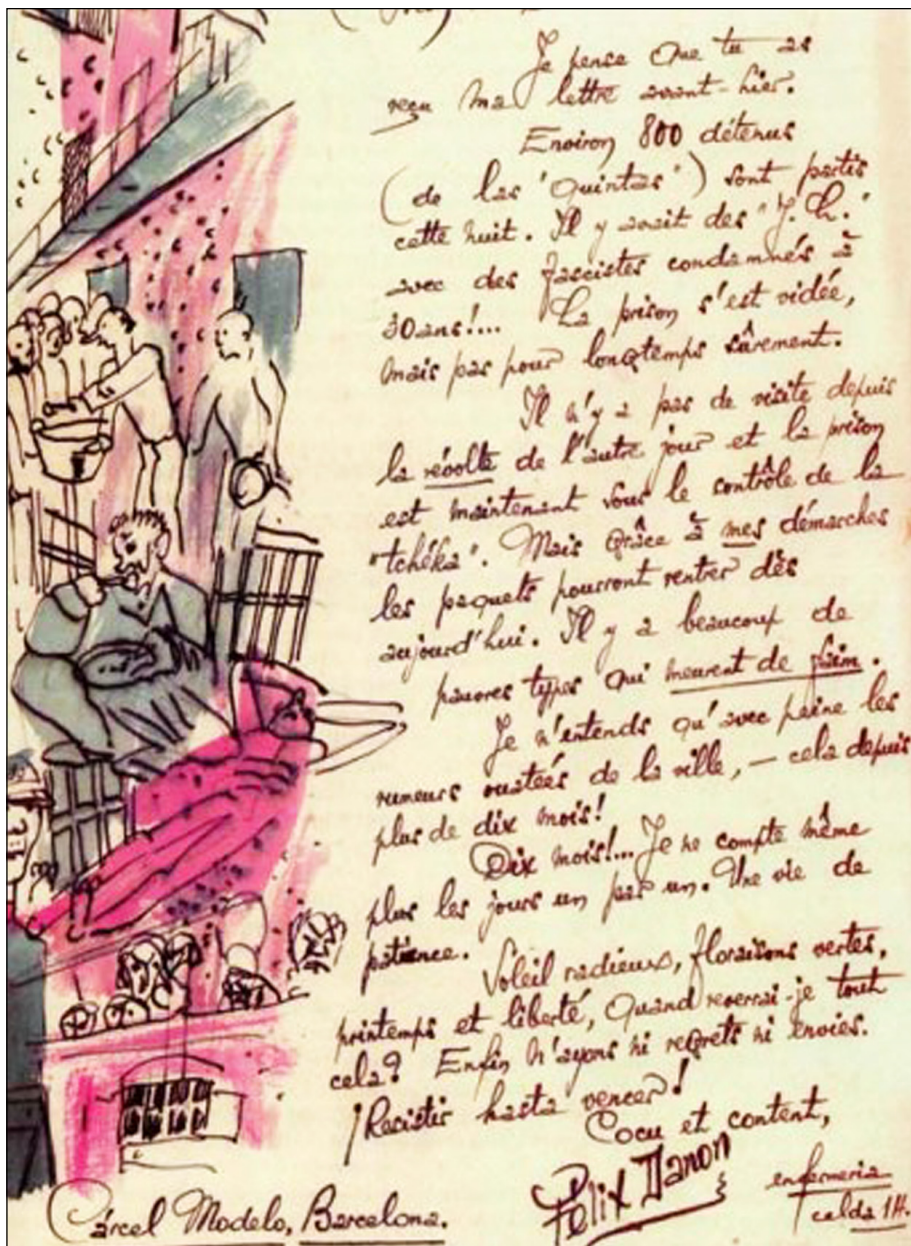 Je pense que tu as
reçu ma lettre avant-hier.
Environ 800 détenus
(de las "quintas") sont partis
cette nuit. Il y avait des "J. L."
avec des fascistes condamnés à
30 ans!... La prison s'est vidée,
mais pas pour longtemps sûrement.
Il n'y a pas de visite depuis
la révolte de l'autre jour et la prison
est maintenant sous le contrôle de la
"tchéka". Mais grâce à mes démarches
les paquets pourront rentrer dès
aujourd'hui. Il y a beaucoup de
pauvres types qui meurent de faim.
Je n'entends qu'avec peine les
rumeurs ouatées de la ville, — cela depuis
plus de dix mois!
Dix mois!... Je ne compte même
plus les jours un par un. Une vie de
patience.
Soleil radieux, floraisons vertes,
printemps et liberté, Quand reverrai-je tout
cela? Enfin n'ayons ni regrets ni envies.
¡Recistir hasta vencer!
Cocu et content,
Félix Danon
enfermeria
celda 14.
Cárcel Modelo, Barcelona.